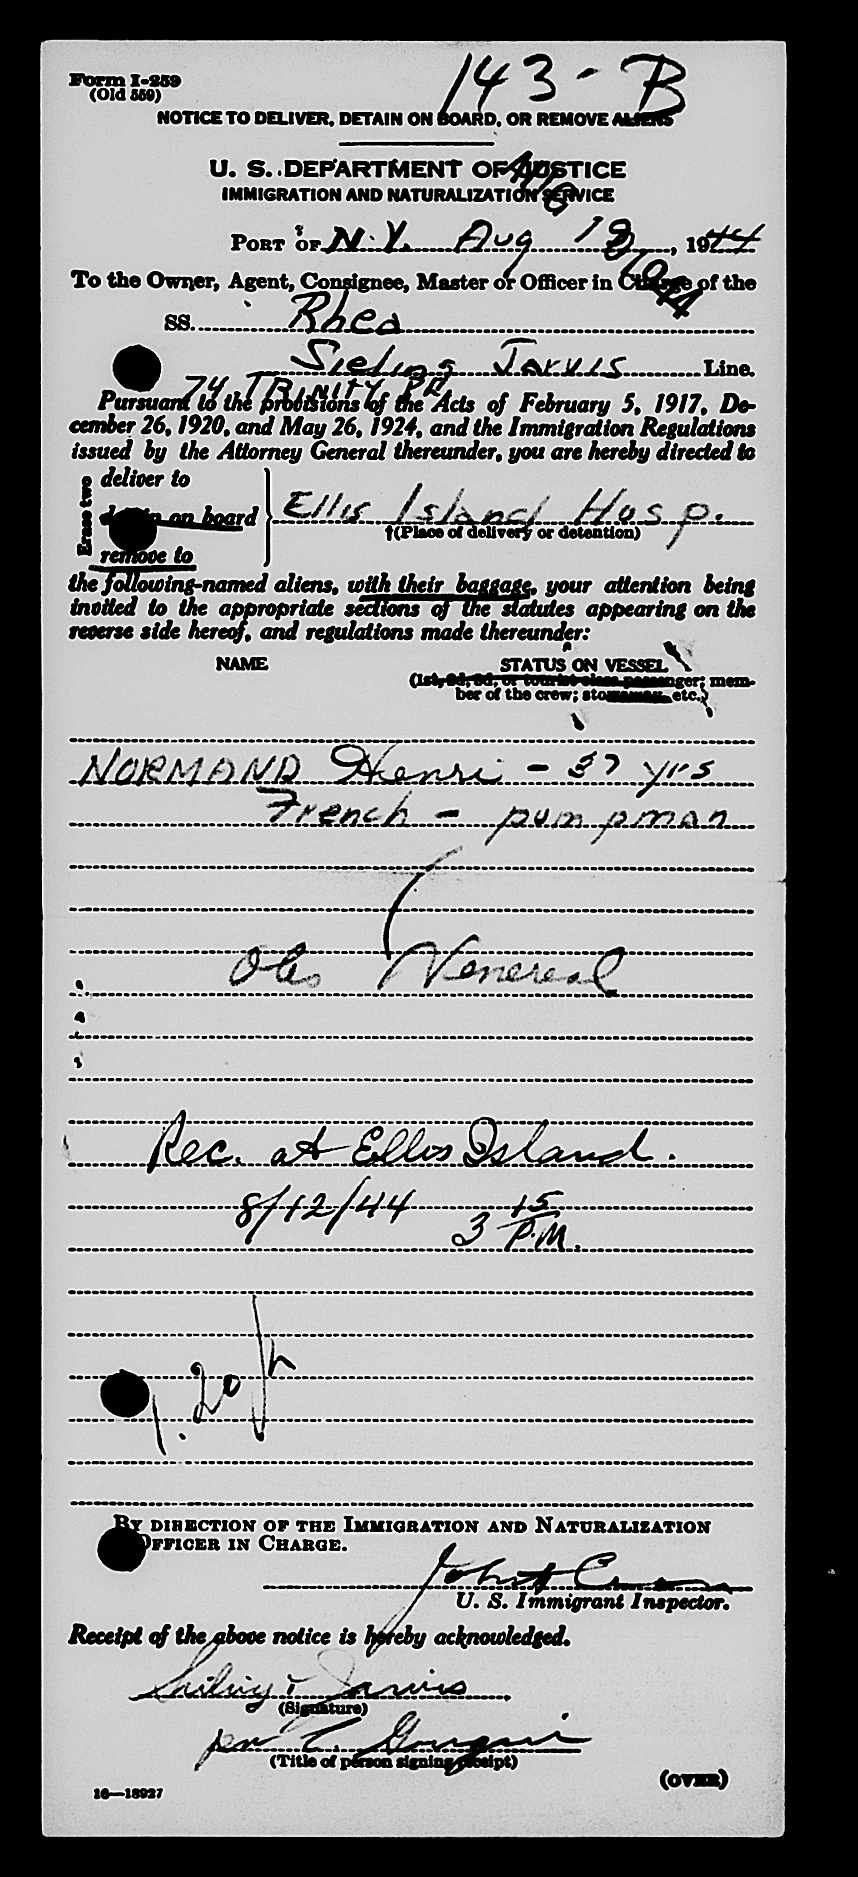 143-B
Form I-259
(Old 559)
NOTICE TO DELIVER, DETAIN ON BOARD, OR REMOVE ALIENS
U. S. DEPARTMENT OF JUSTICE
IMMIGRATION AND NATURALIZATION SERVICE
PORT OF N.Y. Aug 12, 1944
To the Owner, Agent, Consignee, Master or Officer in Charge of the
SS. Rhea
Sieling Jarvis Line.
74 TRINITY Pl.
Pursuant to the provisions of the Acts of February 5, 1917, De-
cember 26, 1920, and May 26, 1924, and the Immigration Regulations
issued by the Attorney General thereunder, you are hereby directed to
Erase two
deliver to
detain on board
remove to
Ellis Island Hosp.
†(Place of delivery or detention)
the following-named aliens, with their baggage, your attention being
invited to the appropriate sections of the statutes appearing on the
reverse side hereof, and regulations made thereunder:
NAME STATUS ON VESSEL
(1st, 2d, 3d, or tourist class passenger; mem-
ber of the crew; stowaway, etc.)
NORMAND Henri - 37 yrs
French - pumpman
Obs Venereal
Rec. at Ellis Island.
8/12/44 3 15 P.M.
BY DIRECTION OF THE IMMIGRATION AND NATURALIZATION
OFFICER IN CHARGE.
John
U. S. Immigrant Inspector.
Receipt of the above notice is hereby acknowledged.
Jarvis
(Signature)
per
(Title of person signing receipt)
(OVER)
16—18927